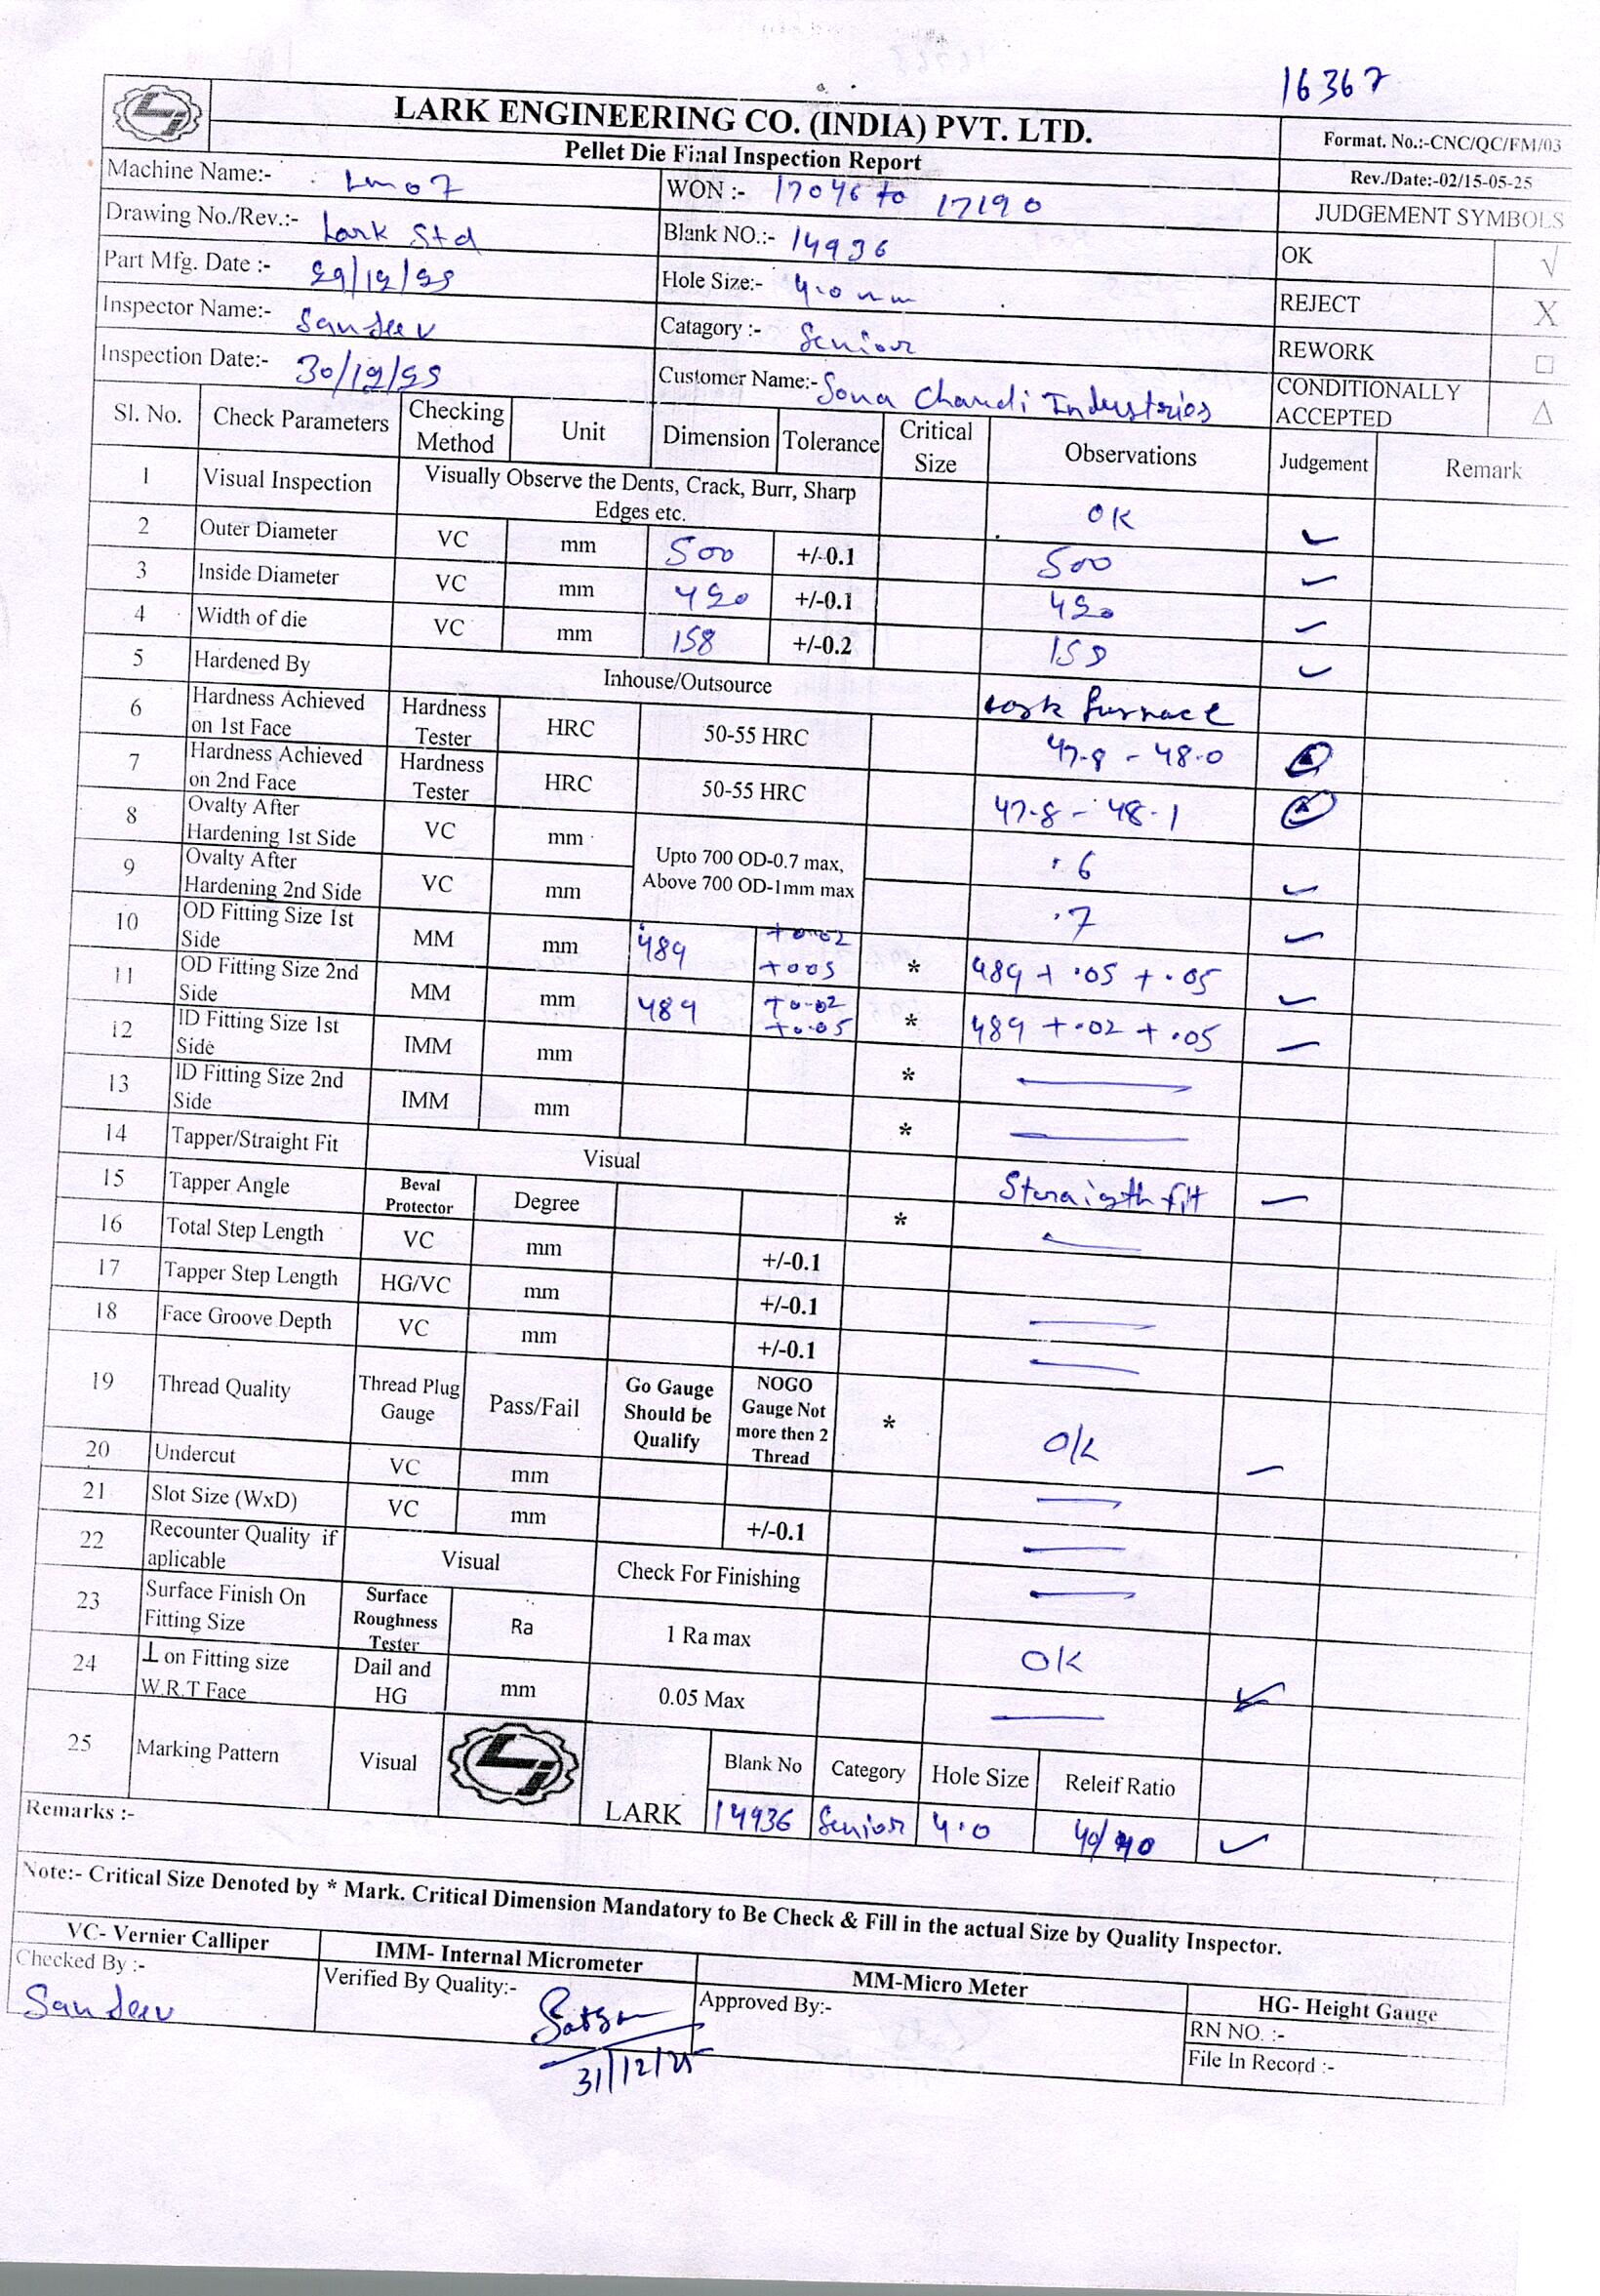 16367
LARK ENGINEERING CO. (INDIA) PVT. LTD.
Format. No.:-CNC/QC/FM/03
Pellet Die Final Inspection Report
Rev./Date:-02/15-05-25
Machine Name:- Lm07
WON :- 17046 to 17190
JUDGEMENT SYMBOLS
Drawing No./Rev.:- Lark Std
Blank NO.:- 14936
OK √
Part Mfg. Date :- 29/12/25
Hole Size:- 4.0 mm
REJECT X
Inspector Name:- Sandeev
Catagory :- Senior
REWORK □
Inspection Date:- 30/12/25
Customer Name:- Sona Chandi Industries
CONDITIONALLY ACCEPTED △
Sl. No. Check Parameters Checking Method Unit Dimension Tolerance Critical Size Observations Judgement Remark
1 Visual Inspection Visually Observe the Dents, Crack, Burr, Sharp Edges etc. OK ✓
2 Outer Diameter VC mm 500 +/-0.1 500 ✓
3 Inside Diameter VC mm 420 +/-0.1 420 ✓
4 Width of die VC mm 158 +/-0.2 158 ✓
5 Hardened By Inhouse/Outsource Lark furnace
6 Hardness Achieved on 1st Face Hardness Tester HRC 50-55 HRC 47.8 - 48.0
7 Hardness Achieved on 2nd Face Hardness Tester HRC 50-55 HRC 47.8 - 48.1
8 Ovalty After Hardening 1st Side VC mm Upto 700 OD-0.7 max, Above 700 OD-1mm max .6 ✓
9 Ovalty After Hardening 2nd Side VC mm .7 ✓
10 OD Fitting Size 1st Side MM mm 489 +0.02 +005 * 489 + .05 + .05 ✓
11 OD Fitting Size 2nd Side MM mm 489 +0.02 +0.05 * 489 + .02 + .05 ✓
12 ID Fitting Size 1st Side IMM mm * —
13 ID Fitting Size 2nd Side IMM mm * —
14 Tapper/Straight Fit Visual Steraigth fit ✓
15 Tapper Angle Beval Protector Degree * —
16 Total Step Length VC mm +/-0.1
17 Tapper Step Length HG/VC mm +/-0.1 —
18 Face Groove Depth VC mm +/-0.1 —
19 Thread Quality Thread Plug Gauge Pass/Fail Go Gauge Should be Qualify NOGO Gauge Not more then 2 Thread * OK ✓
20 Undercut VC mm —
21 Slot Size (WxD) VC mm +/-0.1 —
22 Recounter Quality if aplicable Visual Check For Finishing —
23 Surface Finish On Fitting Size Surface Roughness Tester Ra 1 Ra max OK ✓
24 ⊥ on Fitting size W.R.T Face Dail and HG mm 0.05 Max —
25 Marking Pattern Visual LARK Blank No Category Hole Size Releif Ratio
14936 Senior 4.0 40/40 ✓
Remarks :-
Note:- Critical Size Denoted by * Mark. Critical Dimension Mandatory to Be Check & Fill in the actual Size by Quality Inspector.
VC- Vernier Calliper IMM- Internal Micrometer MM-Micro Meter HG- Height Gauge
Checked By :- Sandeev
Verified By Quality:-
31/12/25
Approved By:-
RN NO. :-
File In Record :-